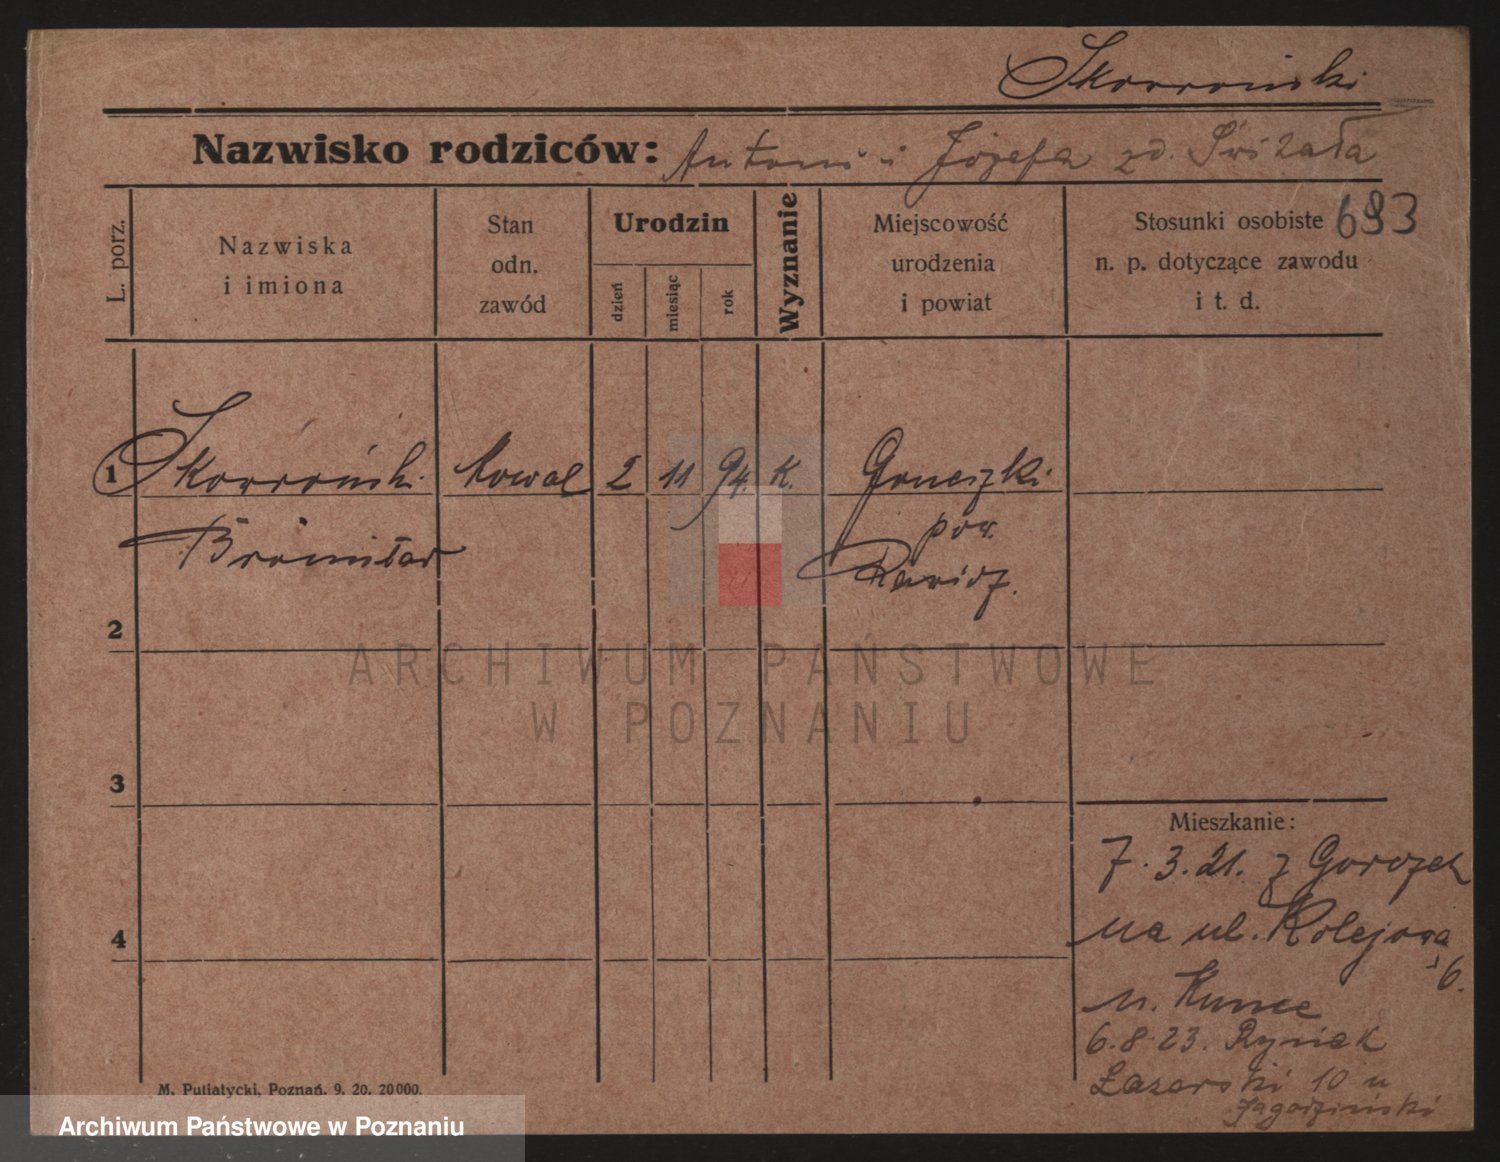 Skowroński
Nazwisko rodziców: Antoni i Józefa zd.
L. porz.
Nazwiska
i imiona
Stan
odn.
zawód
Urodzin
dzień
miesiąc
rok
Wyznanie
Miejscowość
urodzenia
i powiat
Stosunki osobiste 693
n. p. dotyczące zawodu
i t. d.
1 Skowroński kowal 2 11 94. K.
Bronisław pow.
Rawicz.
2
3
4
ARCHIWUM PAŃSTWOWE
W POZNANIU
Mieszkanie:
7.3.21. z
na ul. Kolejową
6.
u. Kunce
6.8.23. Rynek
Łazarski 10 u
Jagodziński
M. Putiatycki, Poznań. 9. 20. 20000.
Archiwum Państwowe w Poznaniu